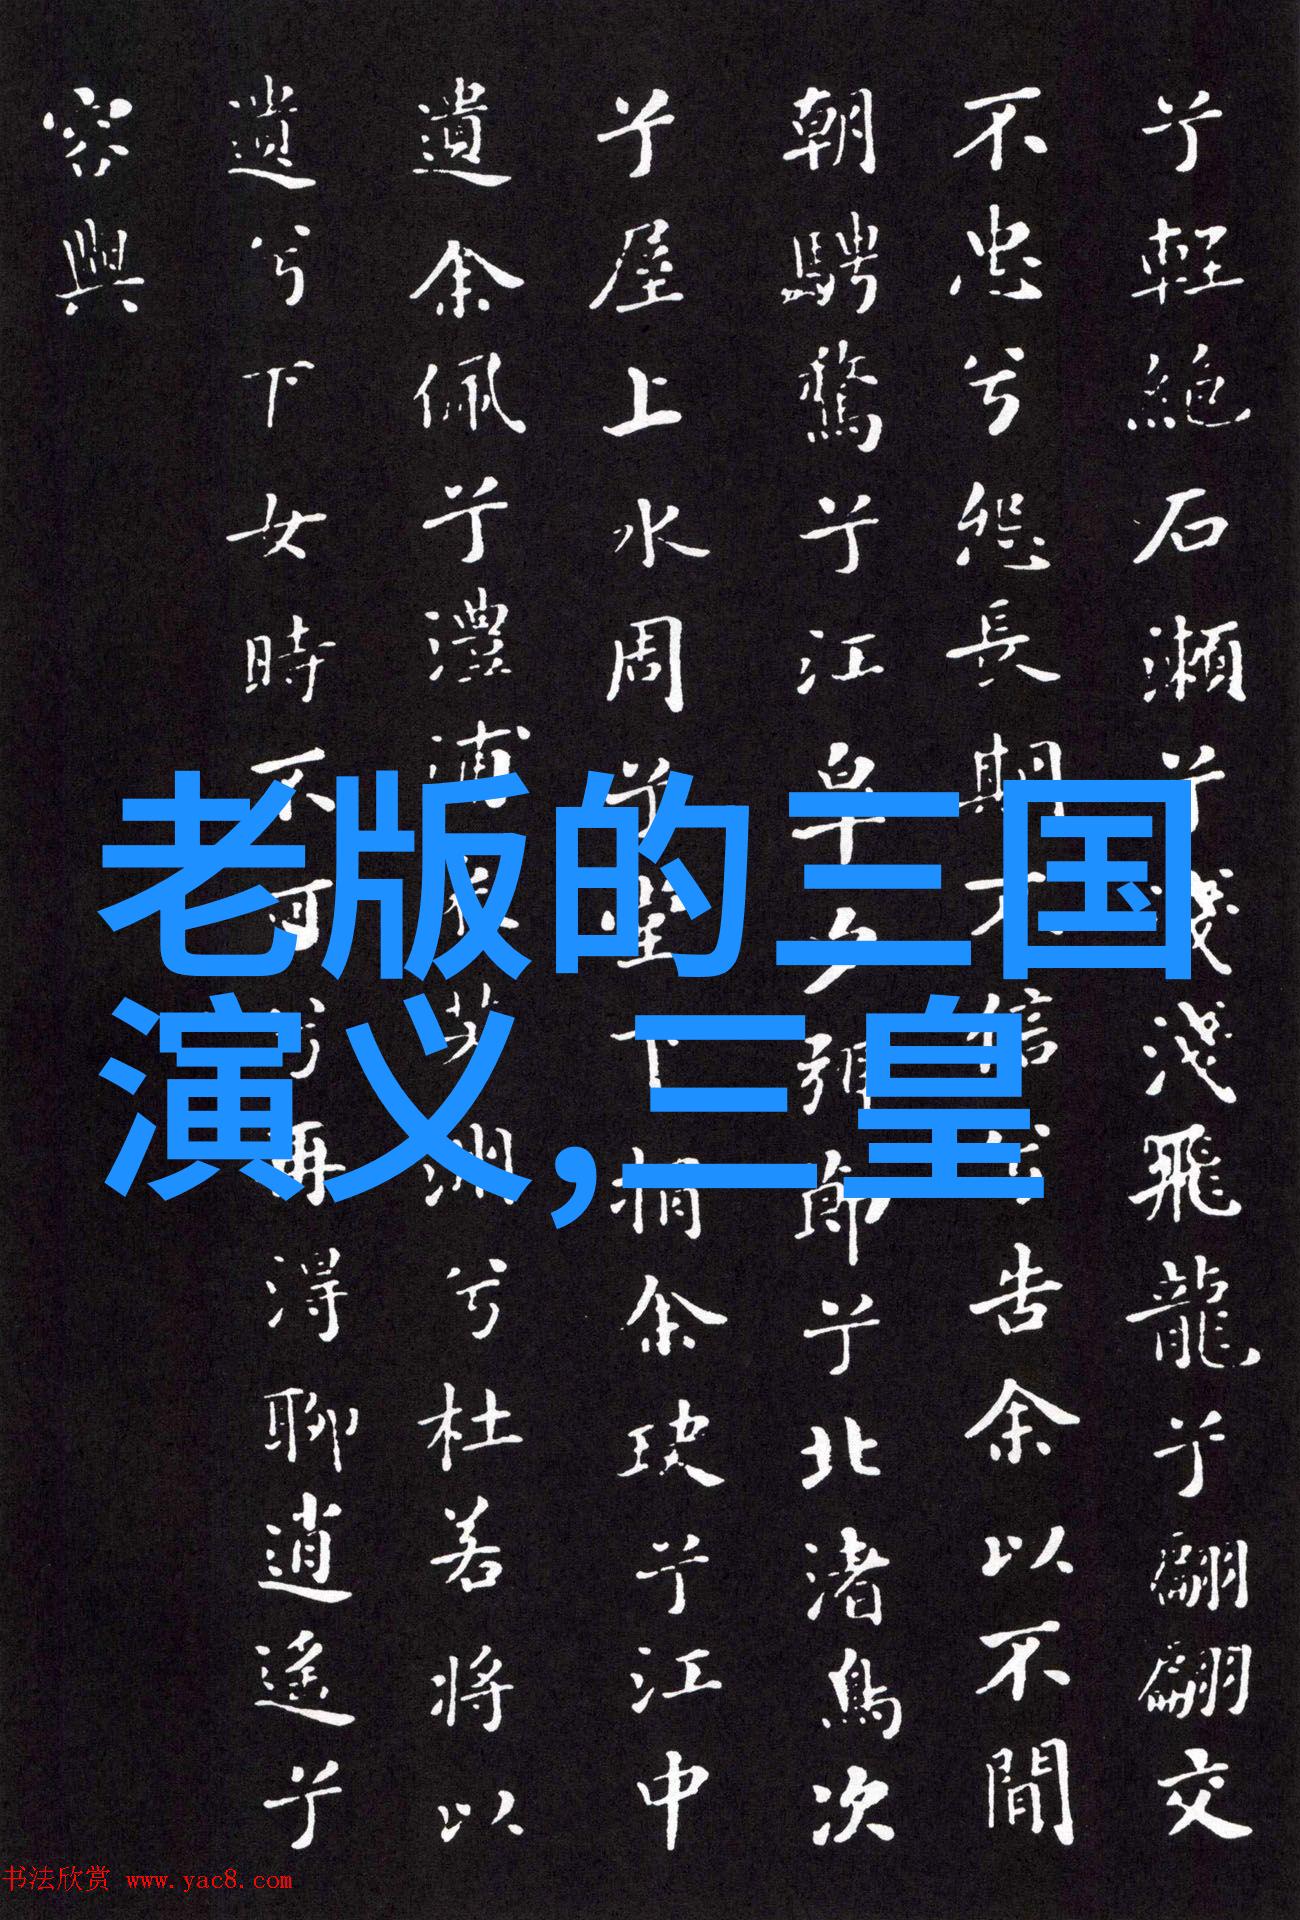 兮輕絕石瀨兮淺淺飛龍兮翩翩交
不忠兮怨長期不信兮告余以不閒
朝騁騖兮江皋夕弭節兮北渚鳥次
兮屋上水周兮堂下捐余玦兮江中
遺余佩兮澧浦采芳洲兮杜若將以
遺兮下女時不可兮再得聊逍遙兮
容與
老版的三国
演义,三皇
书法欣赏 www.yac8.com